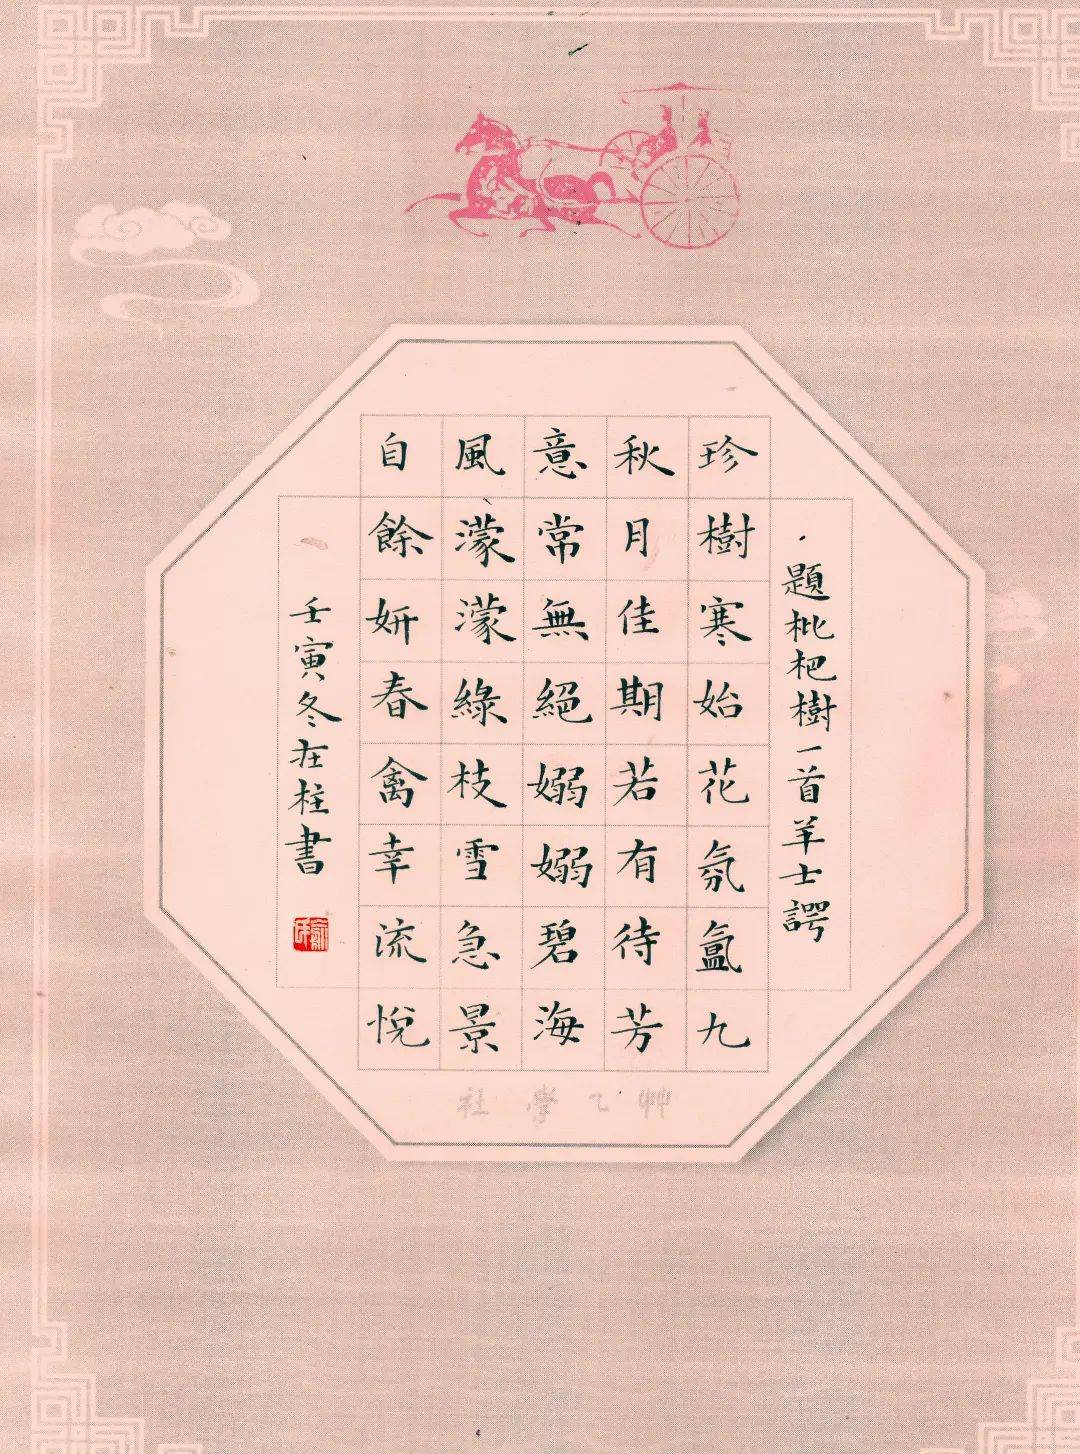 題枇杷樹一首羊士諤
珍樹寒始花氛氳九
秋月佳期若有待芳
意常無絕嫋嫋碧海
風濛濛綠枝雪急景
自餘妍春禽幸流悅
壬寅冬在柱書
艸乙學社